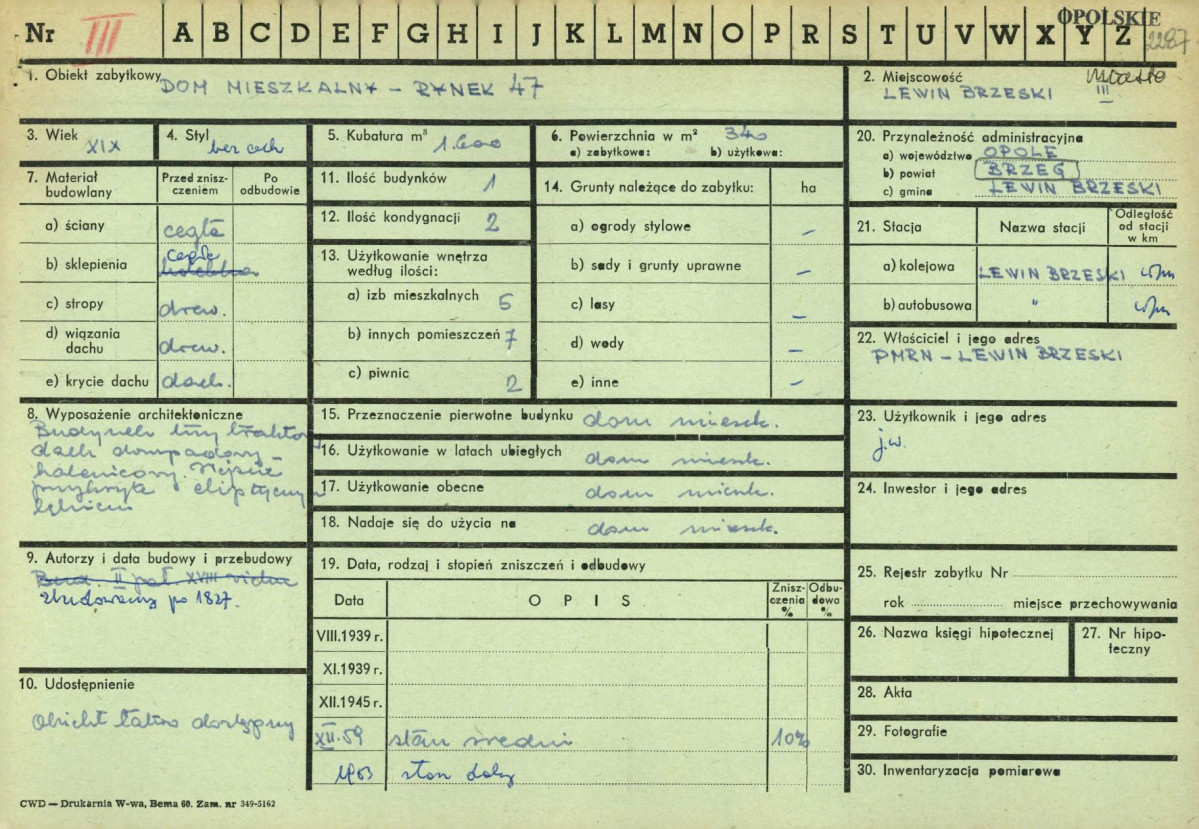 Nr III A B C D E F G H I J K L M N O P R S T U V W X Y Z
OPOLSKIE
2287
1. Obiekt zabytkowy DOM MIESZKALNY – RYNEK 47
2. Miejscowość miasto
LEWIN BRZESKI III
3. Wiek XIX
4. Styl bez cech
5. Kubatura m³ 1.600
6. Powierzchnia w m² 340
a) zabytkowa: b) użytkowa:
7. Materiał budowlany
Przed zniszczeniem
Po odbudowie
a) ściany cegła
b) sklepienia cegła
c) stropy drew.
d) wiązania dachu drew.
e) krycie dachu dach.
8. Wyposażenie architektoniczne
Budynek
dach
kalenicowy. Wejście
przykryte eliptycznym
9. Autorzy i data budowy i przebudowy
Bud. II poł. XVIII wieku
Zbudowany po 1827.
10. Udostępnienie
Obiekt łatwo dostępny
11. Ilość budynków 1
12. Ilość kondygnacji 2
13. Użytkowanie wnętrza według ilości:
a) izb mieszkalnych 5
b) innych pomieszczeń 7
c) piwnic 2
14. Grunty należące do zabytku: ha
a) ogrody stylowe –
b) sady i grunty uprawne –
c) lasy –
d) wody –
e) inne –
15. Przeznaczenie pierwotne budynku dom mieszk.
16. Użytkowanie w latach ubiegłych dom mieszk.
17. Użytkowanie obecne dom mieszk.
18. Nadaje się do użycia na dom mieszk.
19. Data, rodzaj i stopień zniszczeń i odbudowy
Data OPIS Zniszczenia % Odbudowa %
VIII.1939 r.
XI.1939 r.
XII.1945 r.
XII.59 stan średni 10%
1963 stan dobry
20. Przynależność administracyjna
a) województwo OPOLE
b) powiat BRZEG
c) gmina LEWIN BRZESKI
21. Stacja Nazwa stacji Odległość od stacji w km
a) kolejowa LEWIN BRZESKI
b) autobusowa "
22. Właściciel i jego adres
PMRN – LEWIN BRZESKI
23. Użytkownik i jego adres
j.w.
24. Inwestor i jego adres
25. Rejestr zabytku Nr
rok miejsce przechowywania
26. Nazwa księgi hipotecznej
27. Nr hipoteczny
28. Akta
29. Fotografie
30. Inwentaryzacja pomiarowa
CWD — Drukarnia W-wa, Bema 60. Zam. nr 349-5162